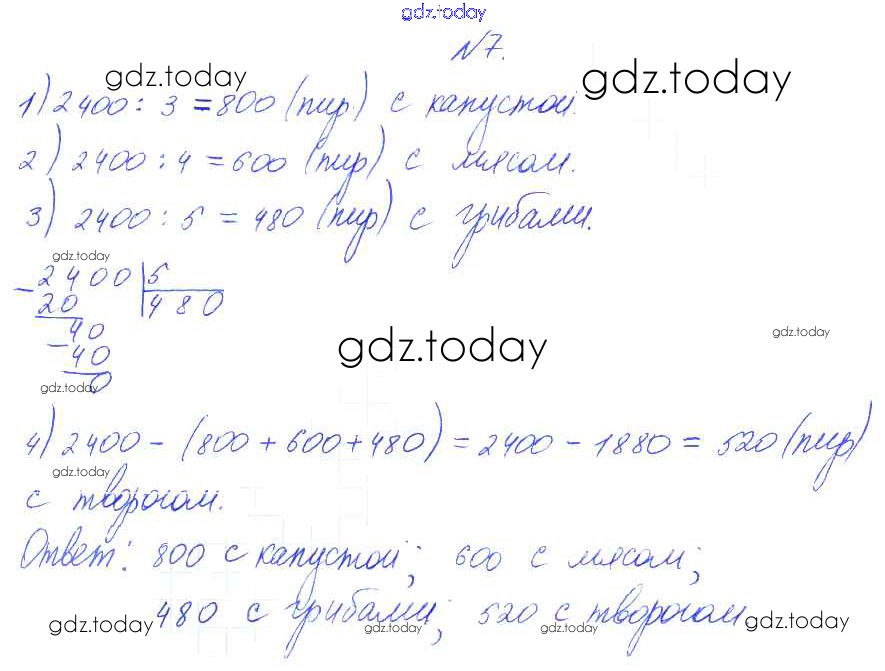 gdz.today
N7.
gdz.today gdz.today
1) 2400 : 3 = 800 (пир) с капустой.
2) 2400 : 4 = 600 (пир) с мясом.
3) 2400 : 5 = 480 (пир) с грибами.
gdz.today
- 2400 | 5
20 | 480
40
- 40
gdz.today gdz.today
0
gdz.today
4) 2400 - (800 + 600 + 480) = 2400 - 1880 = 520 (пир)
gdz.today
с творогом.
Ответ: 800 с капустой; 600 с мясом;
480 с грибами; 520 с творогом
gdz.today gdz.today gdz.today gdz.today